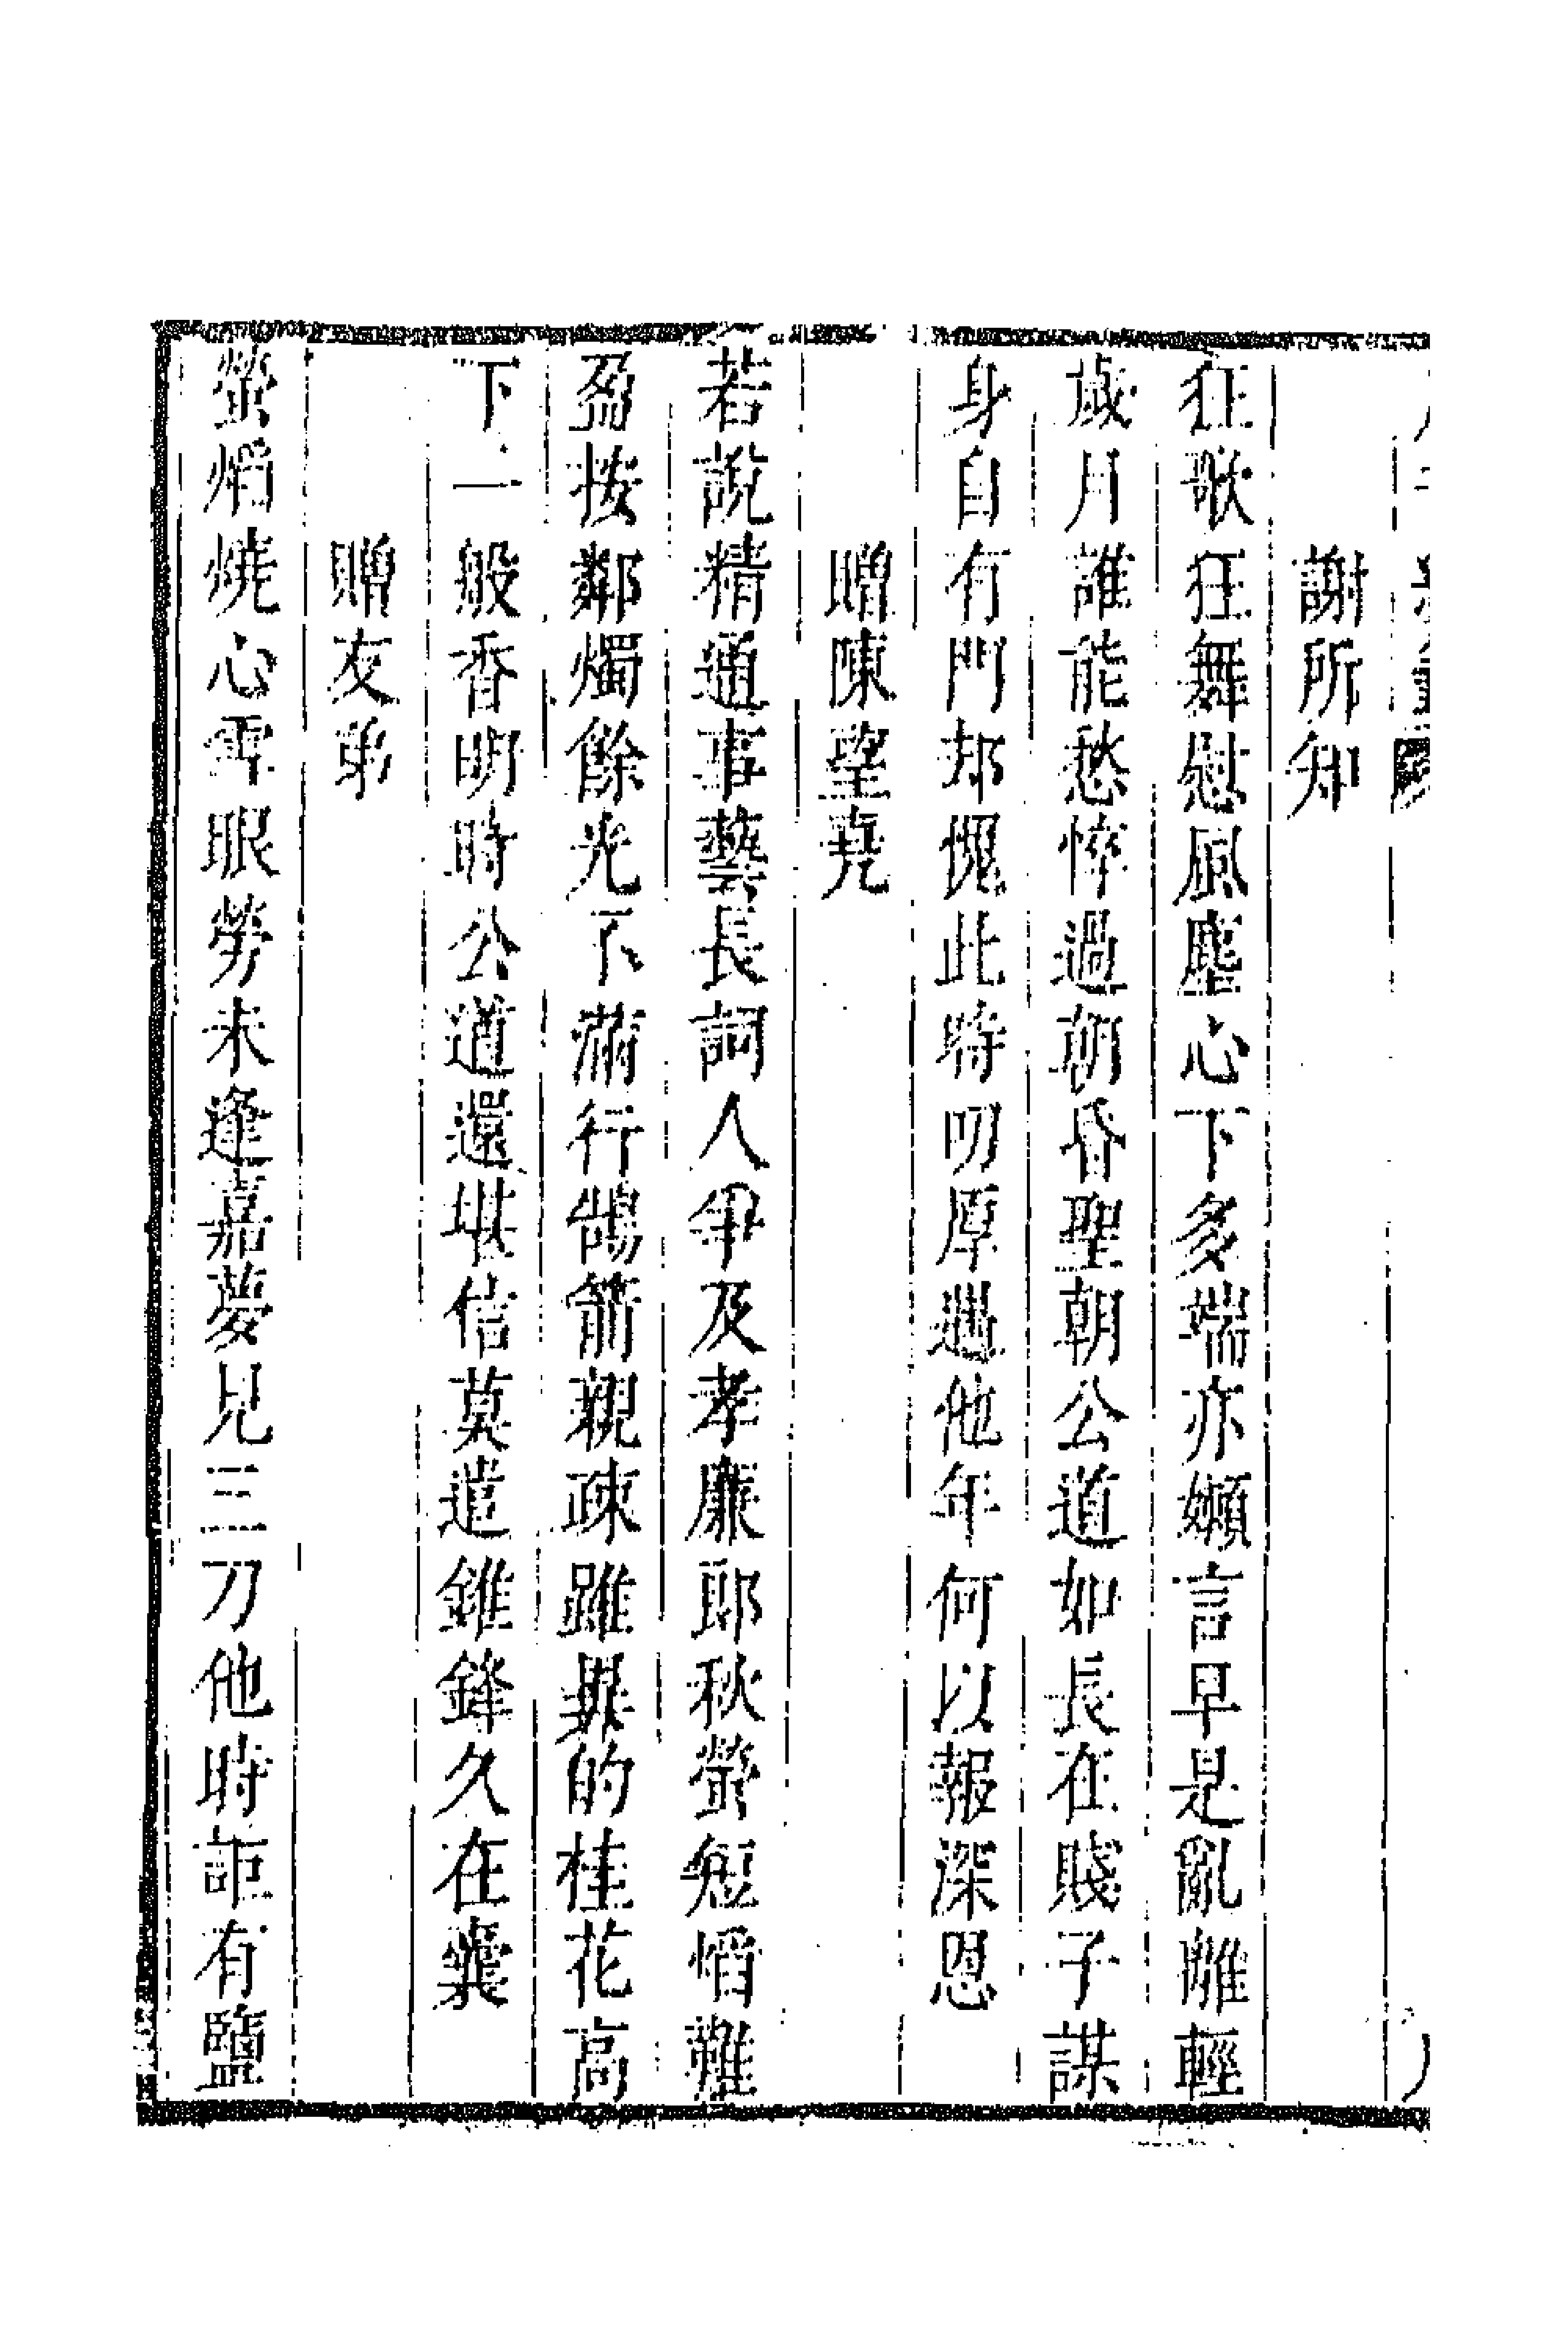 謝所知
狂歌狂舞慰風塵心下多端亦嬾言早是亂離輕
歲月誰能愁悴過朝昏聖朝公道如長在賤子謀
身自有門却愧此時叨厚遇他年何以報深恩
贈陳望堯
若說精通事藝長詞人爭及孝廉郎秋螢短焰難
盈按鄰燭餘光不滿行鵠箭親疎雖異的桂花高
下一般香明時公道還堪信莫遣錐鋒久在囊
贈友弟
螢焰燒心雪眼勞未逢嘉夢見三刀他時詎有鹽